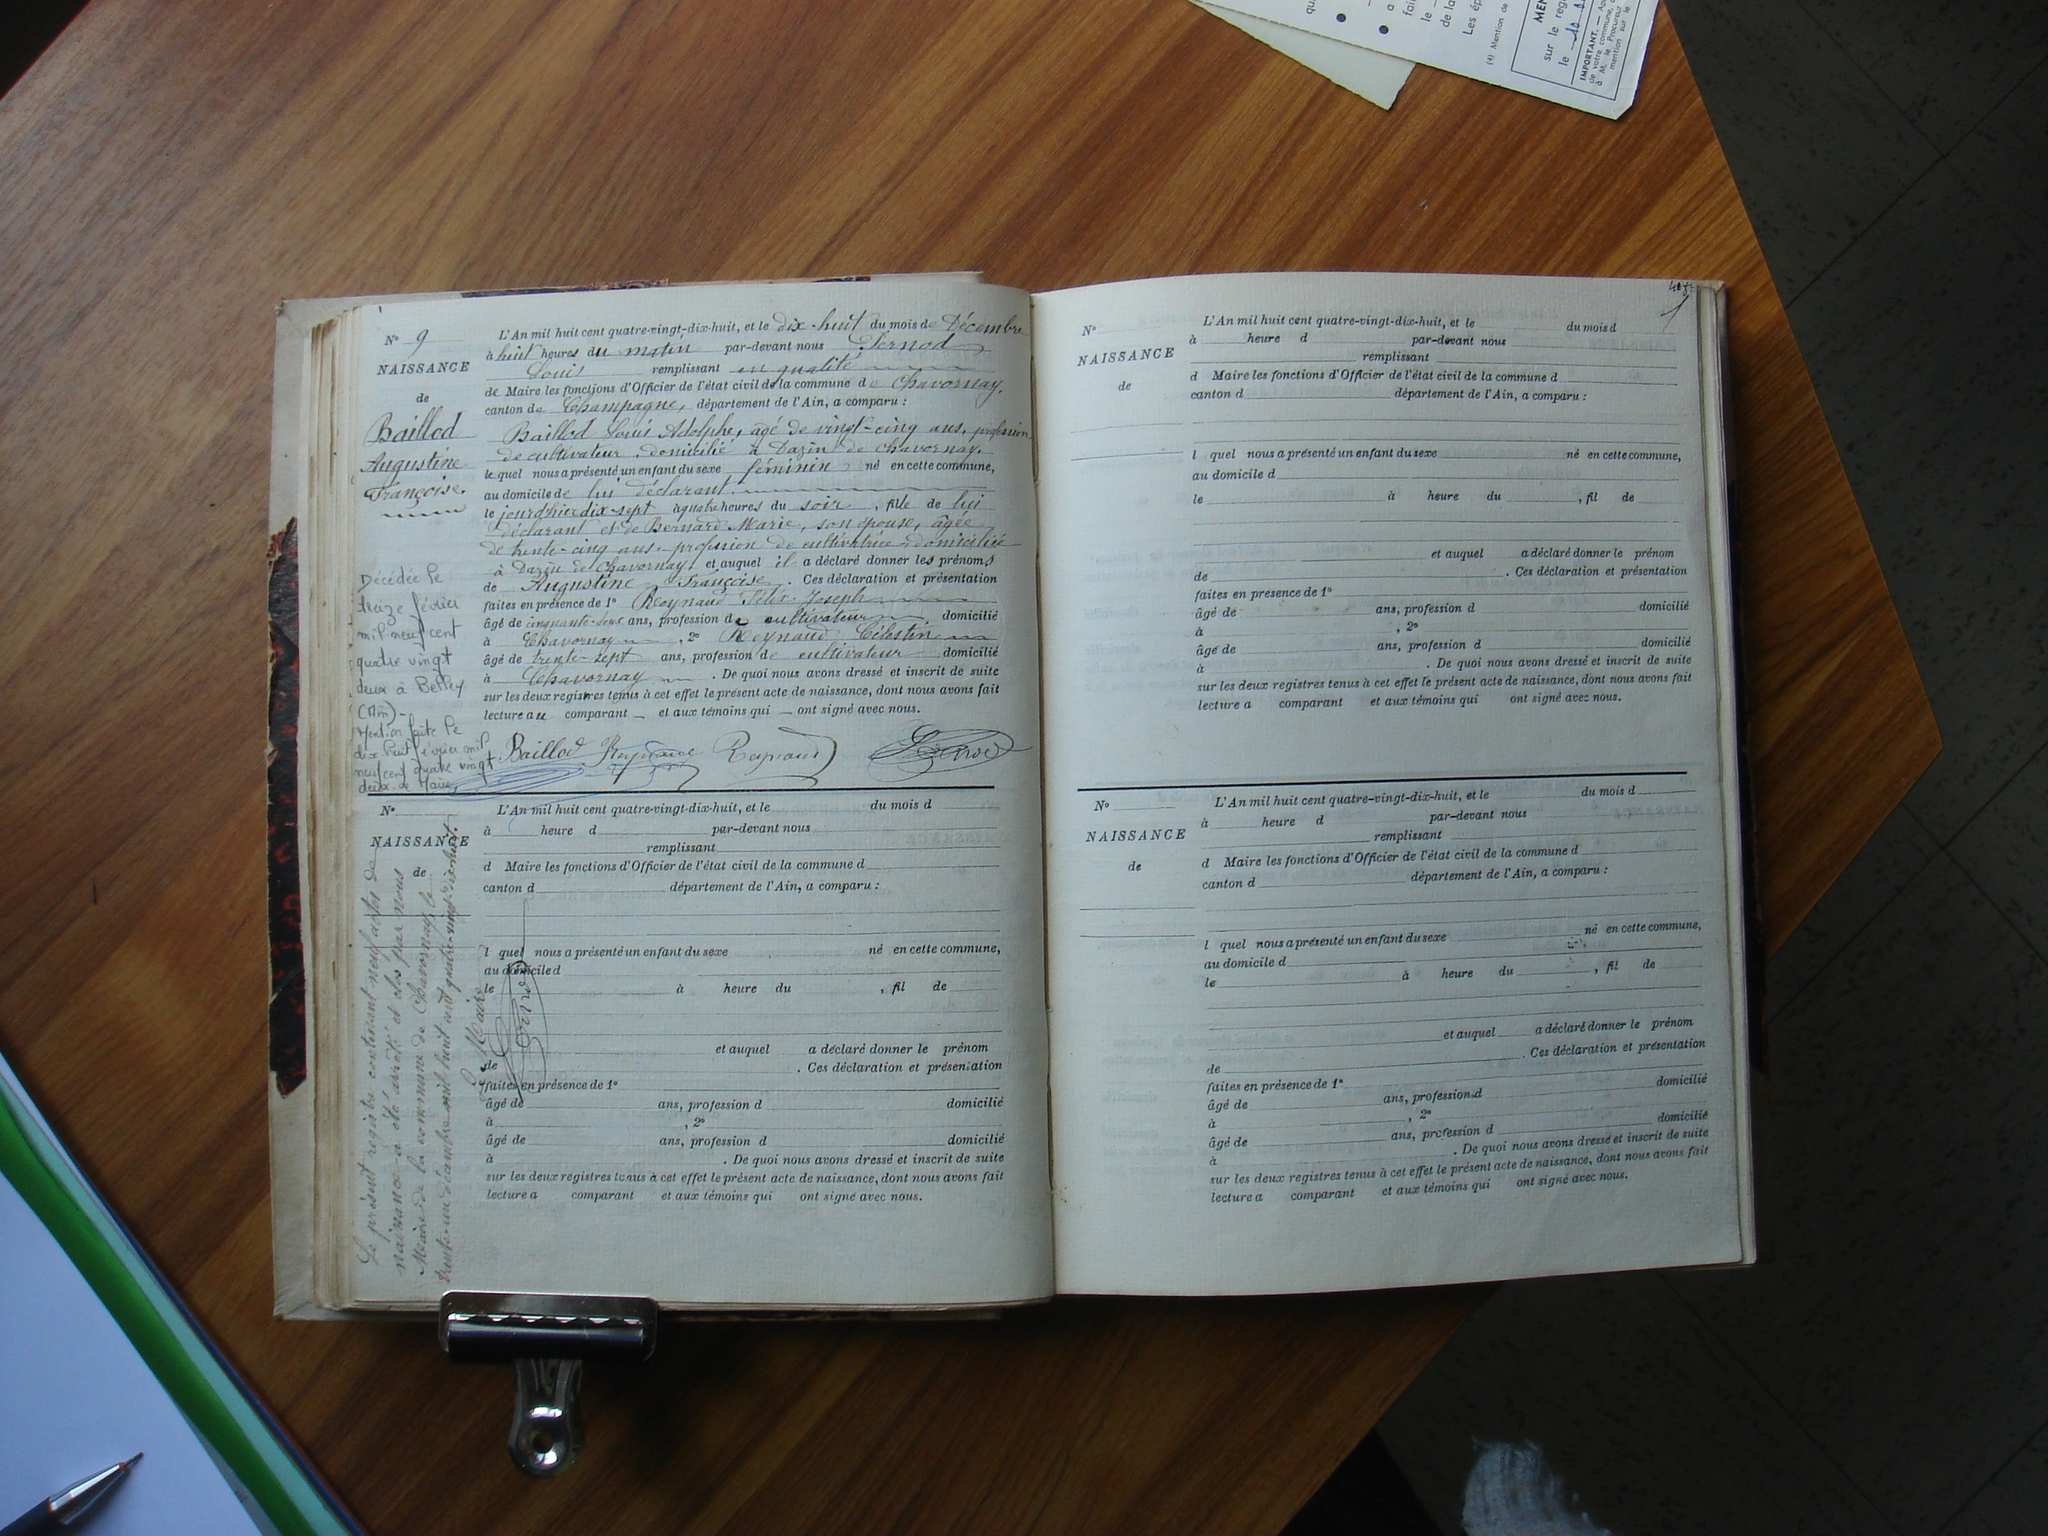 N° 9
NAISSANCE
de
Baillod
Augustine
Françoise.
L'An mil huit cent quatre-vingt-dix-huit, et le dix-huit du mois de Décembre
à huit heures du matin par-devant nous Pernod
Louis remplissant en qualité
de Maire les fonctions d'Officier de l'état civil de la commune de Chavornay.
canton de Champagne, département de l'Ain, a comparu :
Baillod Louis Adolphe, âgé de vingt-cinq ans, profession
de cultivateur, domicilié à Dazin de Chavornay.
le quel nous a présenté un enfant du sexe féminin né en cette commune,
au domicile de lui déclarant
le jourd'hier dix-sept à quatre heures du soir, fille de lui
déclarant et de Bernard Marie, son épouse, âgée
de trente-cinq ans, profession de cultivatrice domiciliée
à Dazin de Chavornay et auquel il a déclaré donner les prénoms
de Augustine Françoise. Ces déclaration et présentation
faites en présence de 1° Reynaud Félix Joseph
âgé de cinquante ans, profession de cultivateur, domicilié
à Chavornay, 2° Reynaud Célestin
âgé de trente-sept ans, profession de cultivateur domicilié
à Chavornay. De quoi nous avons dressé et inscrit de suite
sur les deux registres tenus à cet effet le présent acte de naissance, dont nous avons fait
lecture au comparant et aux témoins qui ont signé avec nous.
Baillod Reynaud Reynaud Pernod
Décédée le
treize février
mil neuf cent
quatre vingt
deux à Belley
(Ain) -
Mention faite le
dix huit février mil
neuf cent quatre vingt
deux. Le Maire,
N°
NAISSANCE
de
L'An mil huit cent quatre-vingt-dix-huit, et le du mois d
à heure d par-devant nous
remplissant
d Maire les fonctions d'Officier de l'état civil de la commune d
canton d département de l'Ain, a comparu :
l quel nous a présenté un enfant du sexe né en cette commune,
au domicile d
le à heure du , fil de
et auquel a déclaré donner le prénom
de . Ces déclaration et présentation
faites en présence de 1°
âgé de ans, profession d domicilié
à , 2°
âgé de ans, profession d domicilié
à . De quoi nous avons dressé et inscrit de suite
sur les deux registres tenus à cet effet le présent acte de naissance, dont nous avons fait
lecture a comparant et aux témoins qui ont signé avec nous.
Le présent registre contenant neuf actes de
naissance a été arrêté et clos par nous
Maire de la commune de Chavornay le
trente-un décembre mil huit cent quatre-vingt-dix-huit.
Le Maire
Pernod
N°
NAISSANCE
de
L'An mil huit cent quatre-vingt-dix-huit, et le du mois d
à heure d par-devant nous
remplissant
d Maire les fonctions d'Officier de l'état civil de la commune d
canton d département de l'Ain, a comparu :
l quel nous a présenté un enfant du sexe né en cette commune,
au domicile d
le à heure du , fil de
et auquel a déclaré donner le prénom
de . Ces déclaration et présentation
faites en présence de 1°
âgé de ans, profession d domicilié
à , 2°
âgé de ans, profession d domicilié
à . De quoi nous avons dressé et inscrit de suite
sur les deux registres tenus à cet effet le présent acte de naissance, dont nous avons fait
lecture a comparant et aux témoins qui ont signé avec nous.
N°
NAISSANCE
de
L'An mil huit cent quatre-vingt-dix-huit, et le du mois d
à heure d par-devant nous
remplissant
d Maire les fonctions d'Officier de l'état civil de la commune d
canton d département de l'Ain, a comparu :
l quel nous a présenté un enfant du sexe né en cette commune,
au domicile d
le à heure du , fil de
et auquel a déclaré donner le prénom
de . Ces déclaration et présentation
faites en présence de 1°
âgé de ans, profession d domicilié
à , 2°
âgé de ans, profession d domicilié
à . De quoi nous avons dressé et inscrit de suite
sur les deux registres tenus à cet effet le présent acte de naissance, dont nous avons fait
lecture a comparant et aux témoins qui ont signé avec nous.
qu
● a
fai
le
de la
Les ép
(4) Mention de
MEN
sur le reg
le 10
IMPORTANT. —
de votre commune,
à M. le Procureur
mention sur le